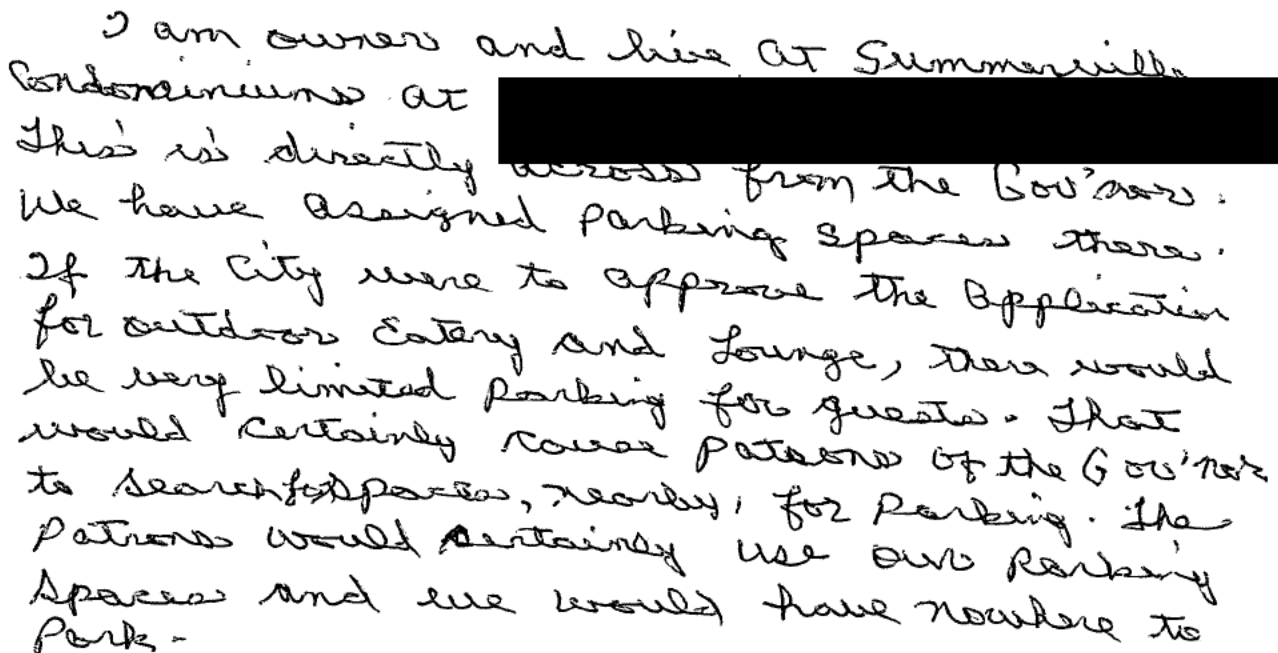 I am owner and live at Summerville
Condominiums at
This is directly across from the Gov'nor.
We have assigned parking spaces there.
If the City were to approve the application
for outdoor Eatery and Lounge, there would
be very limited parking for guests. That
would certainly cause patrons of the Gov'nor
to search for spaces, nearby, for parking. The
patrons would certainly use our parking
spaces and we would have nowhere to
park.